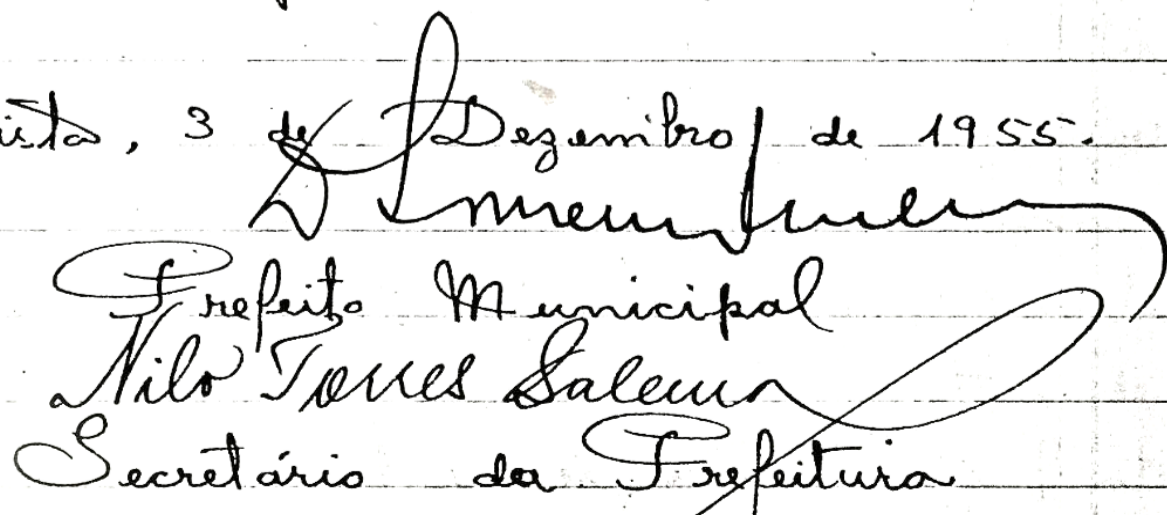 ista, 3 de Dezembro de 1955.
Prefeito Municipal
Nilo Torres Salema
Secretário da Prefeitura